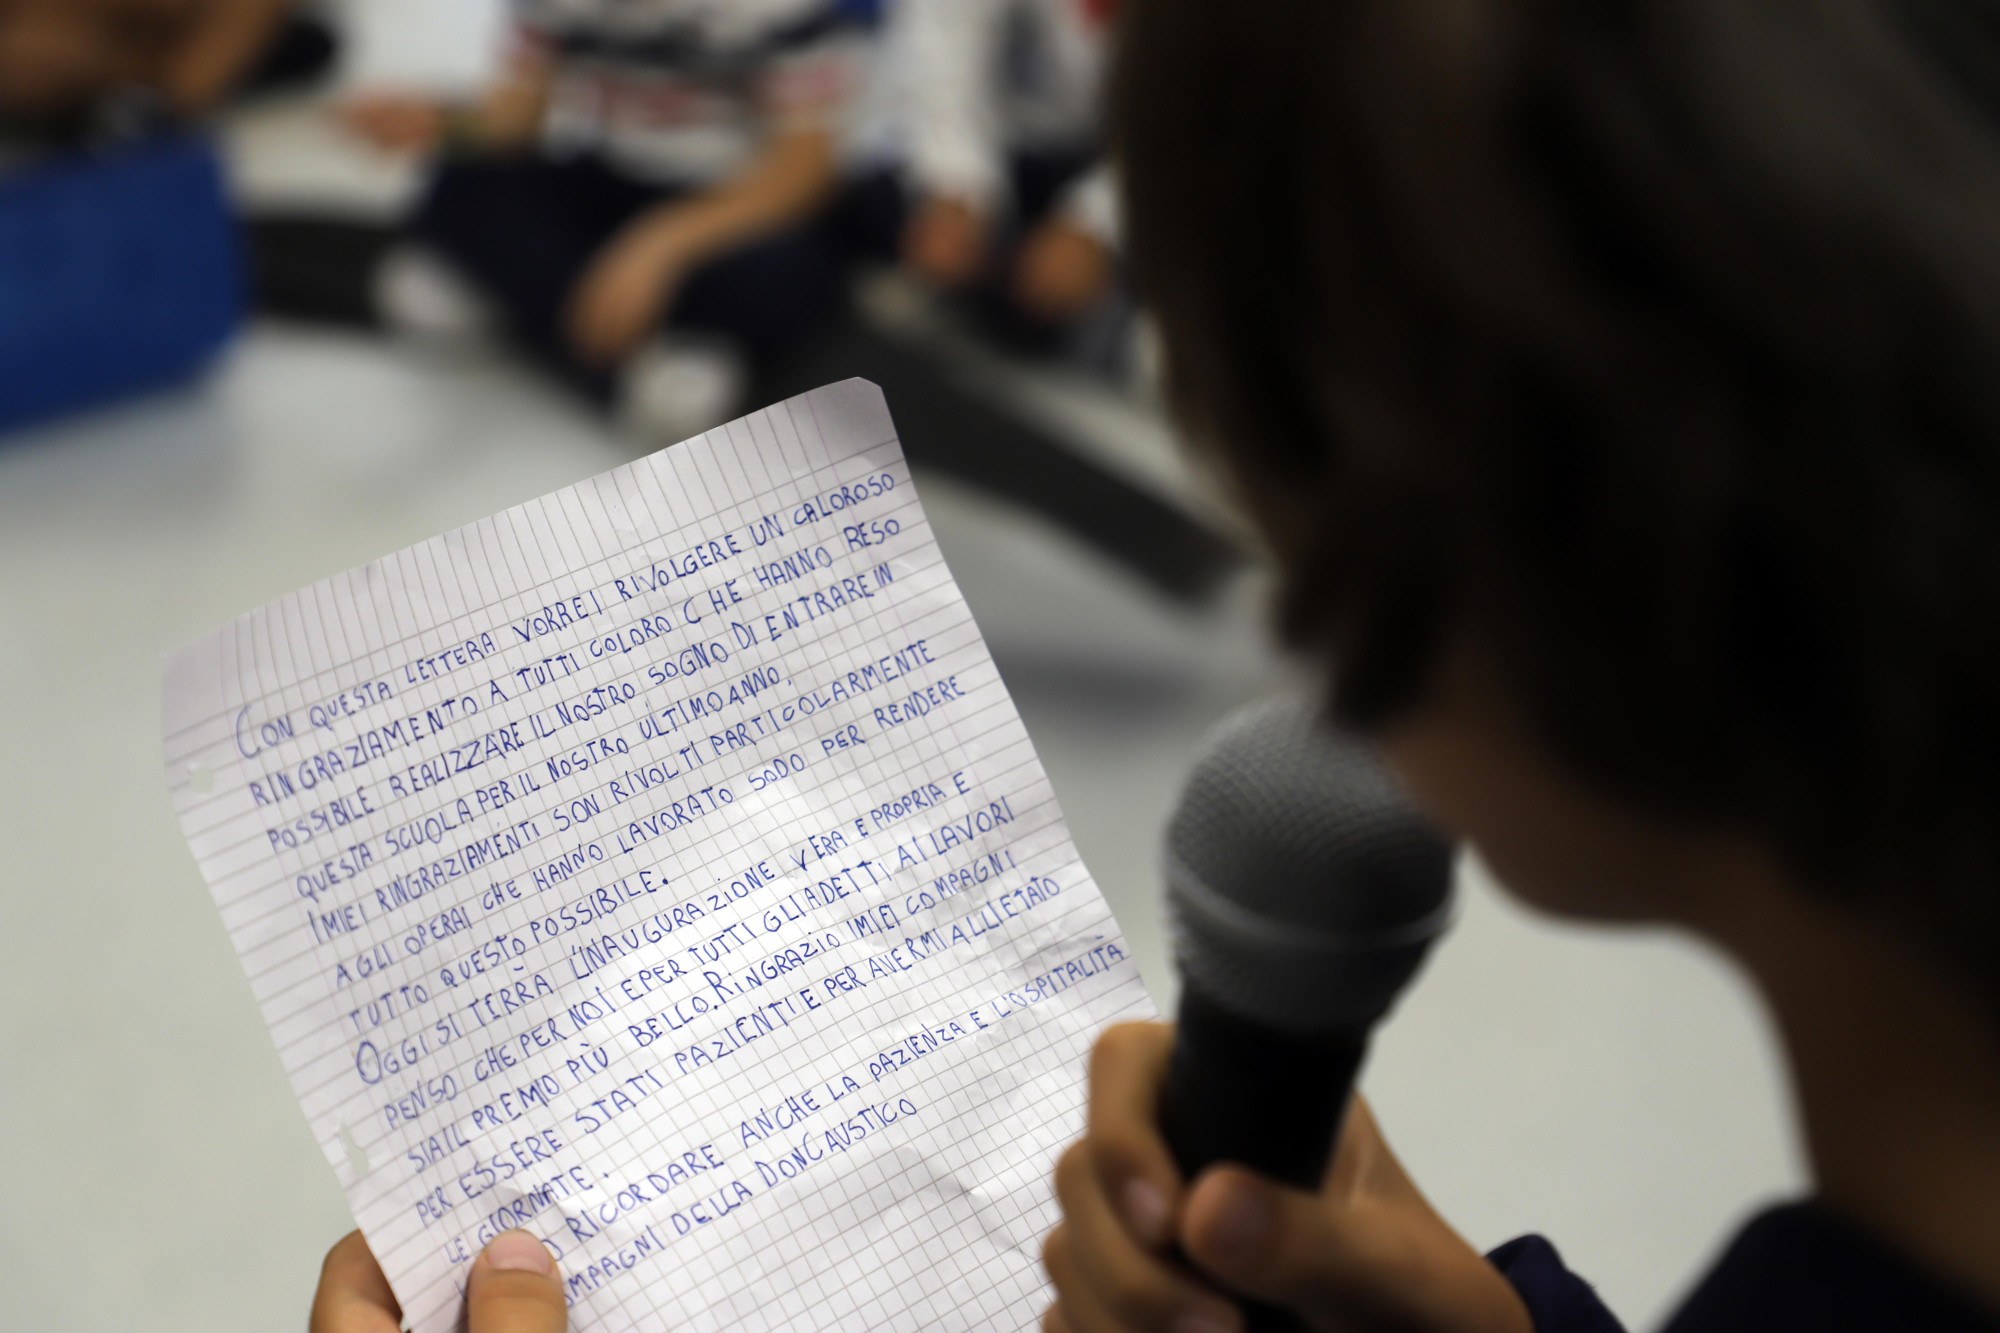 CON QUESTA LETTERA VORREI RIVOLGERE UN CALOROSO
RINGRAZIAMENTO A TUTTI COLORO CHE HANNO RESO
POSSIBILE REALIZZARE IL NOSTRO SOGNO DI ENTRARE IN
QUESTA SCUOLA PER IL NOSTRO ULTIMO ANNO.
I MIEI RINGRAZIAMENTI SON RIVOLTI PARTICOLARMENTE
AGLI OPERAI CHE HANNO LAVORATO SODO PER RENDERE
TUTTO QUESTO POSSIBILE.
OGGI SI TERRÀ L'INAUGURAZIONE VERA E PROPRIA E
PENSO CHE PER NOI E PER TUTTI GLI ADETTI AI LAVORI
SIA IL PREMIO PIÙ BELLO. RINGRAZIO I MIEI COMPAGNI
PER ESSERE STATI PAZIENTI E PER AVERMI ALLIETATO
LE GIORNATE.
RICORDARE ANCHE LA PAZIENZA E L'OSPITALITÀ
DELLA DON CAUSTICO